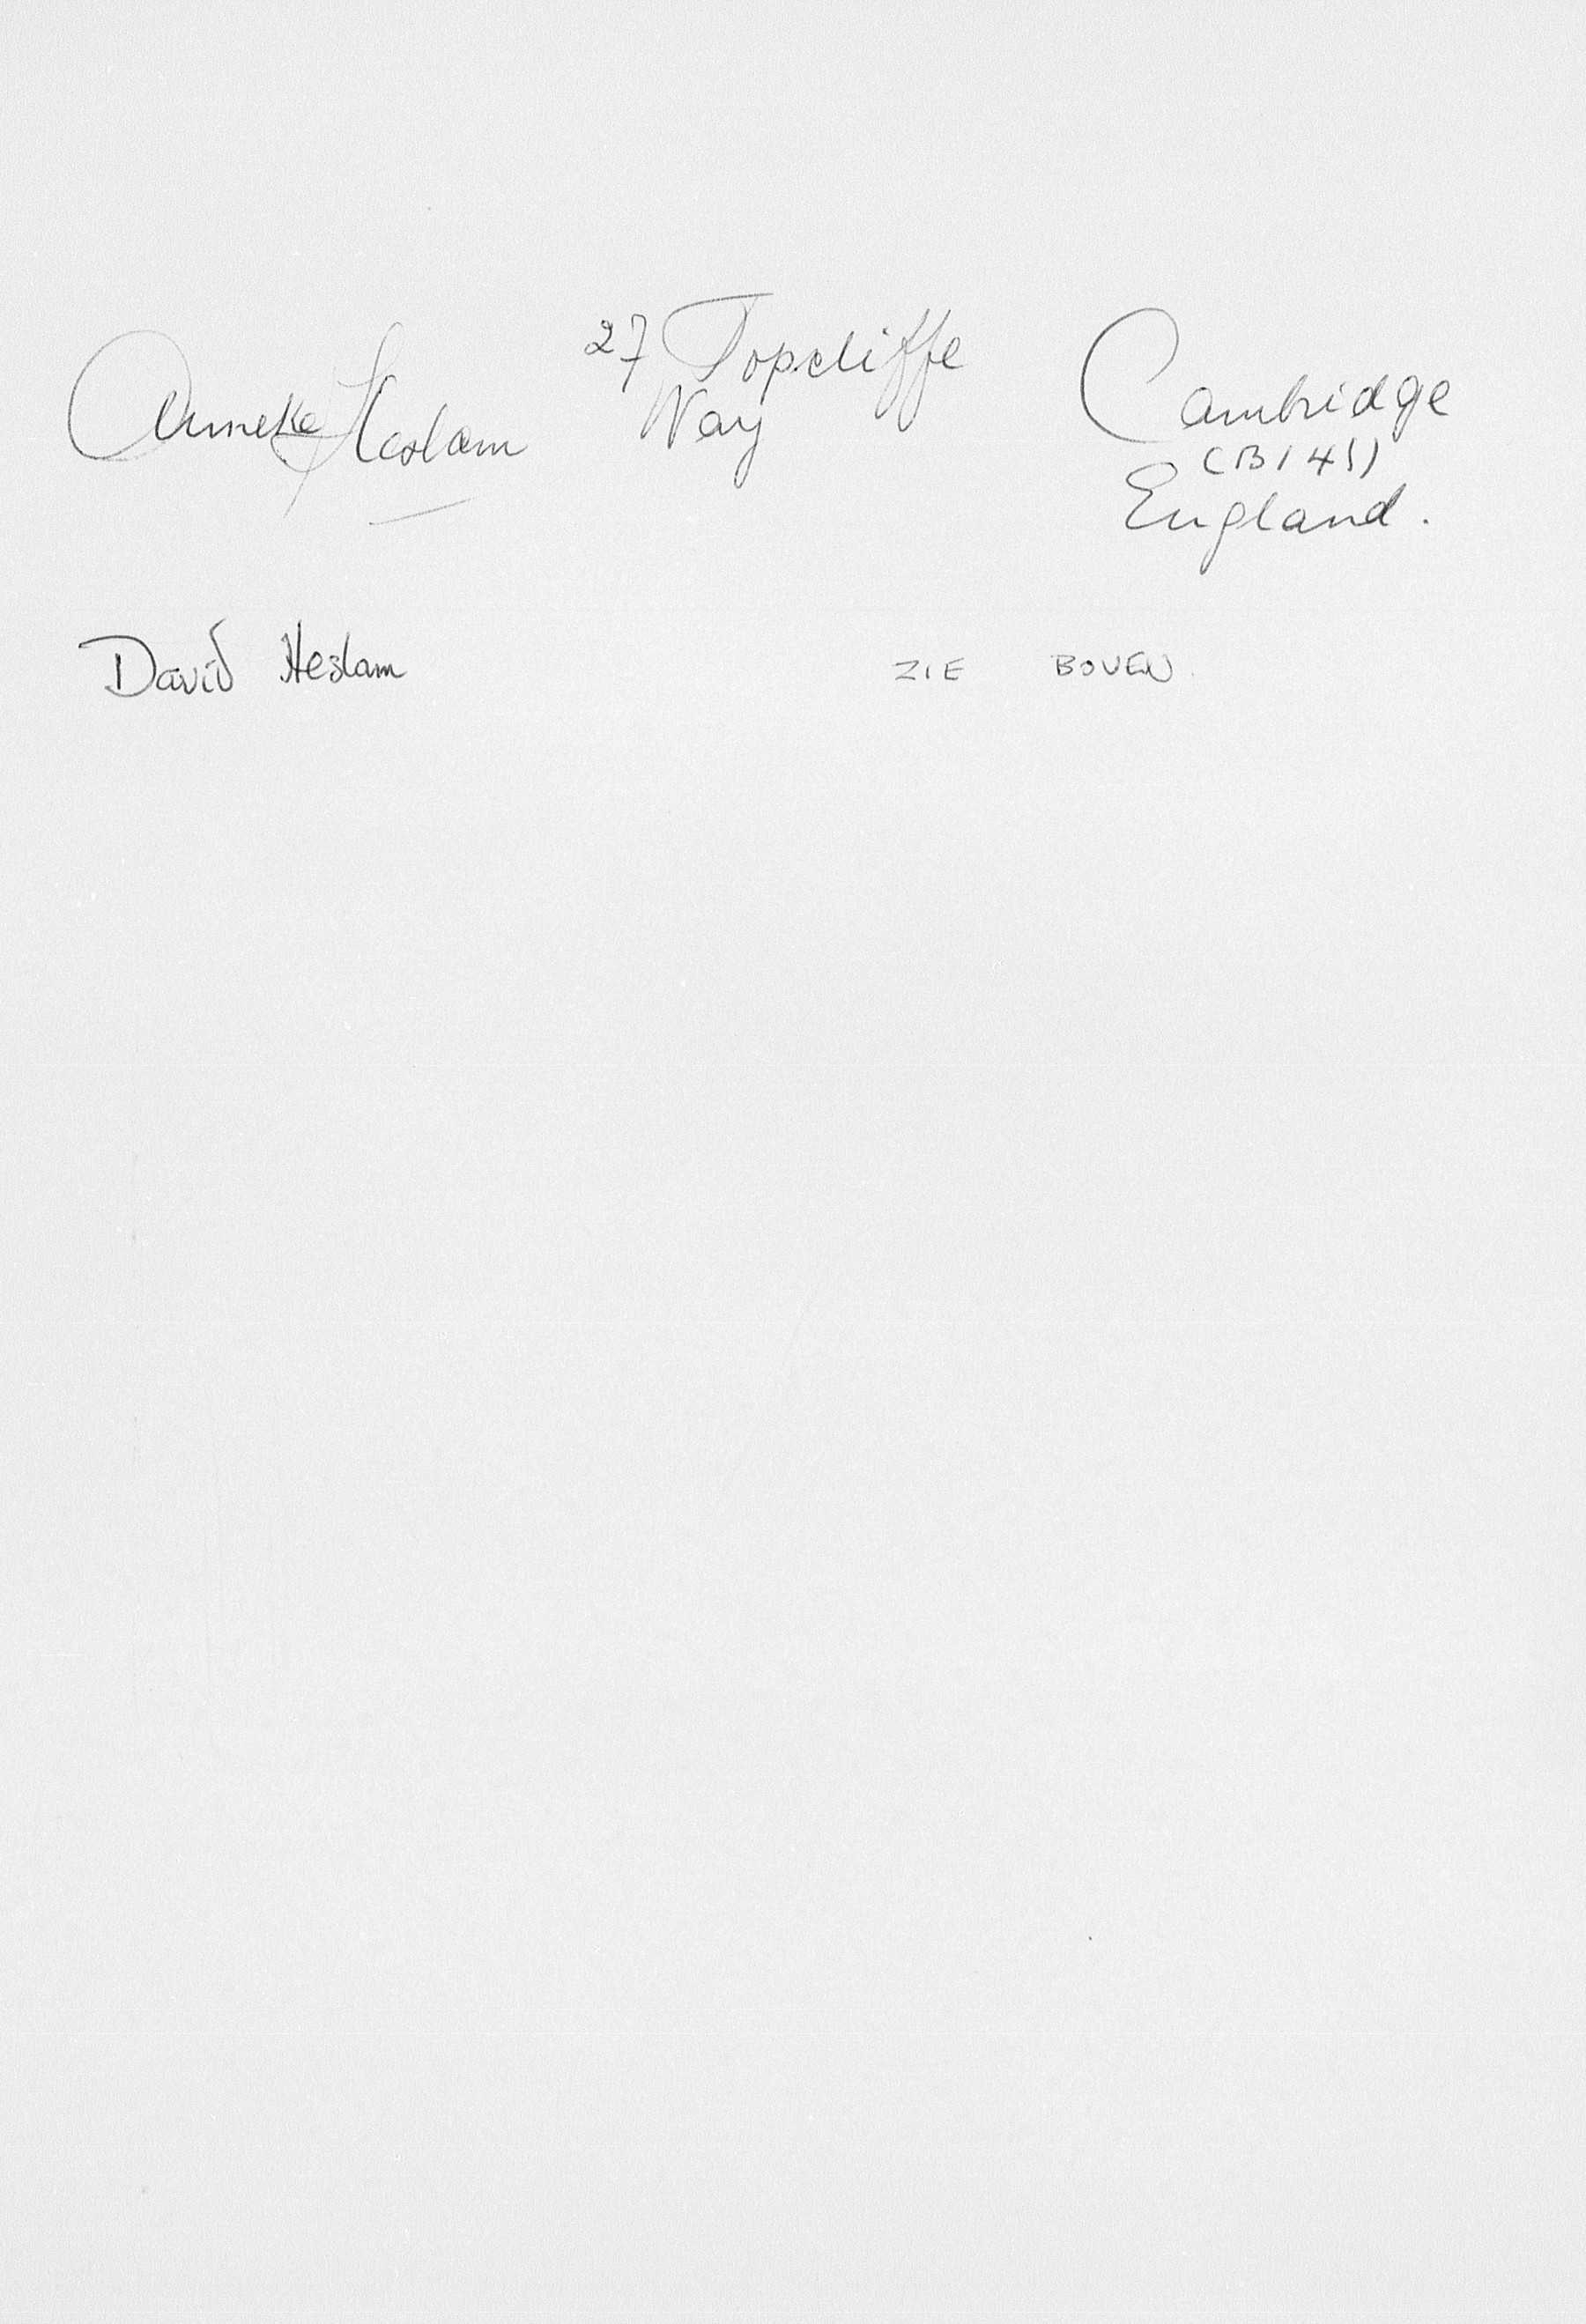 Anneke Heslam 27 Topcliffe Way Cambridge
CB1 4SJ
England.
David Heslam ZIE BOVEN